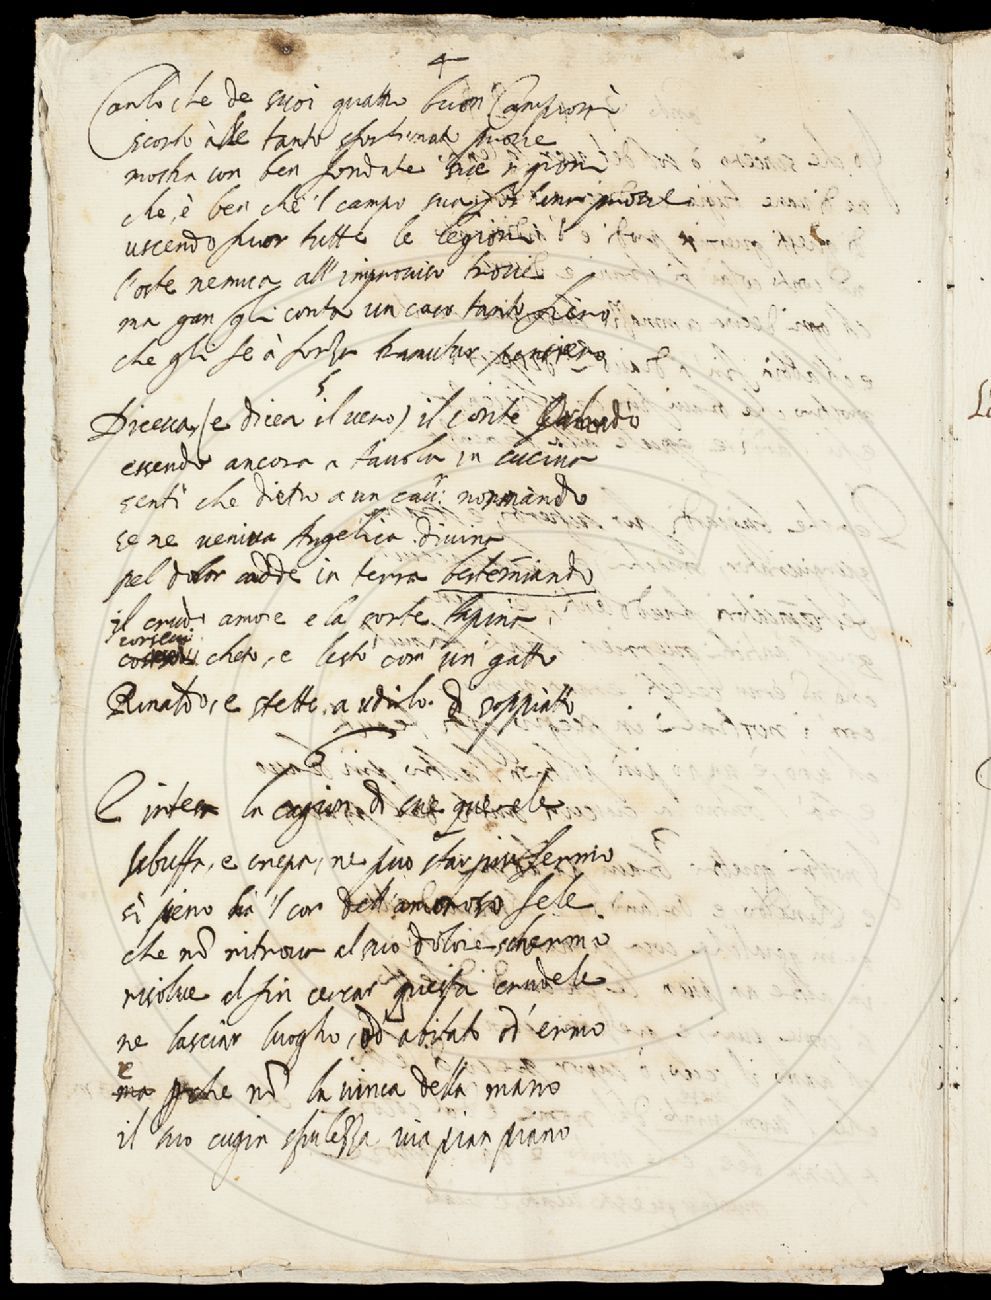 4
Carlo che de suoi quattro buon Campioni
scorto à le tanto sfortunate prove
mostra con ben fondate sue ragioni
che, è ben che 'l campo suo
uscendo fuor tutte le legioni
l'oste nemica all'improviso trove
ma gan gli conta un caso tanto fiero
che gli fe à forza tramutar pensiero
5
Dicea, (e dicea il vero) il conte Orlando
essendo ancora a tavola in cucina
sentì che dietro a un cau: normando
se ne veniva Angelica divina
pel dolor cadde in terra bestemiando
il crudo amore e la sorte tapina
corsevi cheto, e lesto com' un gatto
Rinaldo, e stette a udirlo di soppiatto
E intesa la cagion di sue querele
sbuffa, e crepa, ne può star più fermo
sì pieno hà 'l cor dell'amoroso fele
che nõ ritrova al suo dolore schermo
risolve al fin cercar questa crudele
ne lasciar luogho, od abitato od' ermo
e perche nõ la vinca della mano
il suo cugin spulezza via pian piano